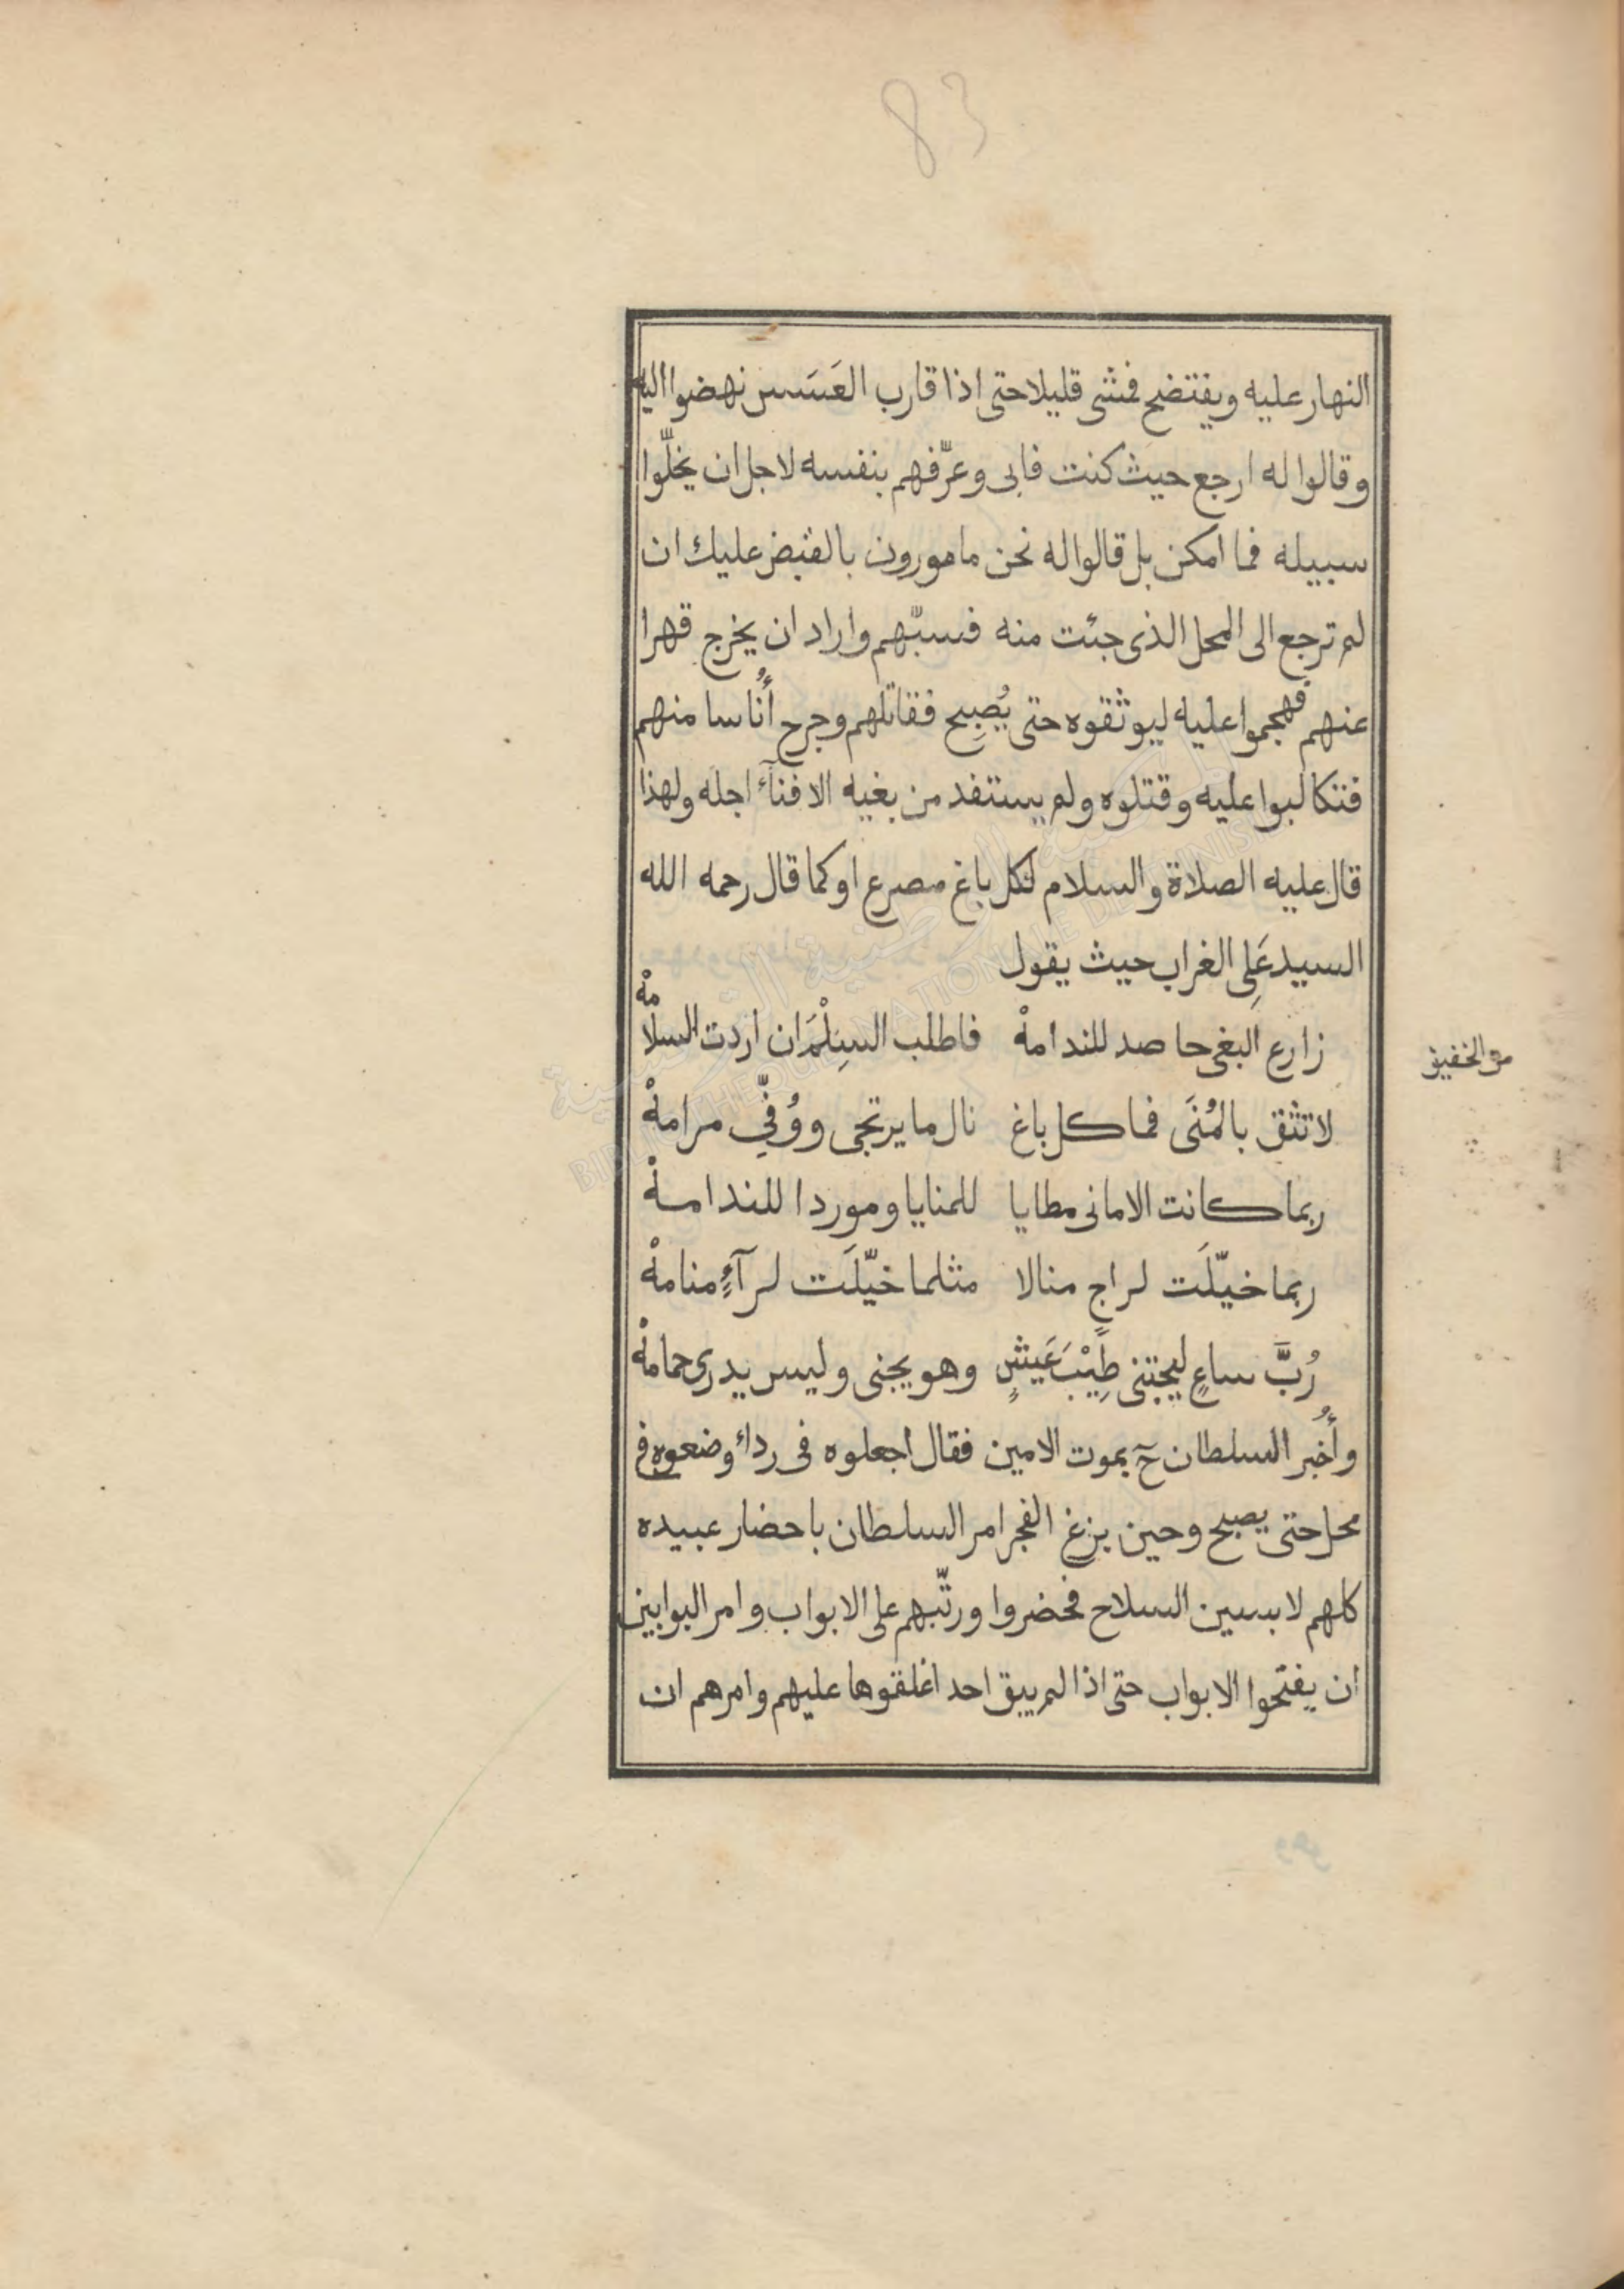 83
النهار عليه ويفتضح فمشى قليلا حتى اذا قارب العَسَس نهضوا اليه
وقالوا له ارجع حيث كنت فابى وعرّفهم بنفسه لاجل ان يخلّوا
سبيله فما امكن بل قالوا له نحن مامورون بالقبض عليك ان
لم ترجع الى المحل الذى جئت منه فسبّهم واراد ان يخرج قهرا
عنهم فهجموا عليه ليوثقوه حتى يُصبِح فقاتلهم وجرح أُناسا منهم
فتكالبوا عليه وقتلوه ولم يستفد من بغيه الا فنآء اجله ولهذا
قال عليه الصلاة والسلام لكل باغ مصرع او كما قال رحمه الله
السيد عَلِى الغراب حيث يقول
زارع البغى حاصد للندامهْ فاطلب السِلْمَ ان اردت السلامهْ
من الخفيف
لا تثق بالمُنَى فما كل باغ نال ما يرتجى ووُفِّى مرامهْ
ربما كانت الامانى مطايا للمنايا وموردا للندامهْ
ربما خيّلَت لراجٍ منالا مثلما خيّلَت لرآءٍ منامهْ
رُبَّ ساعٍ ليجتنى طِيْبَ عَيشٍ وهو يجنى وليس يدرى حمامهْ
وأُخبر السلطان حٓ بموت الامين فقال اجعلوه فى رداء وضعوه فى
محل حتى يصبح وحين بزغ الفجر امر السلطان باحضار عبيده
كلهم لابسين السلاح فحضروا ورتّبهم على الابواب وامر البوابين
ان يفتحوا الابواب حتى اذا لم يبق احد اغلقوها عليهم وامرهم ان
BIBLIOTHEQUE NATIONALE DE TUNISIE